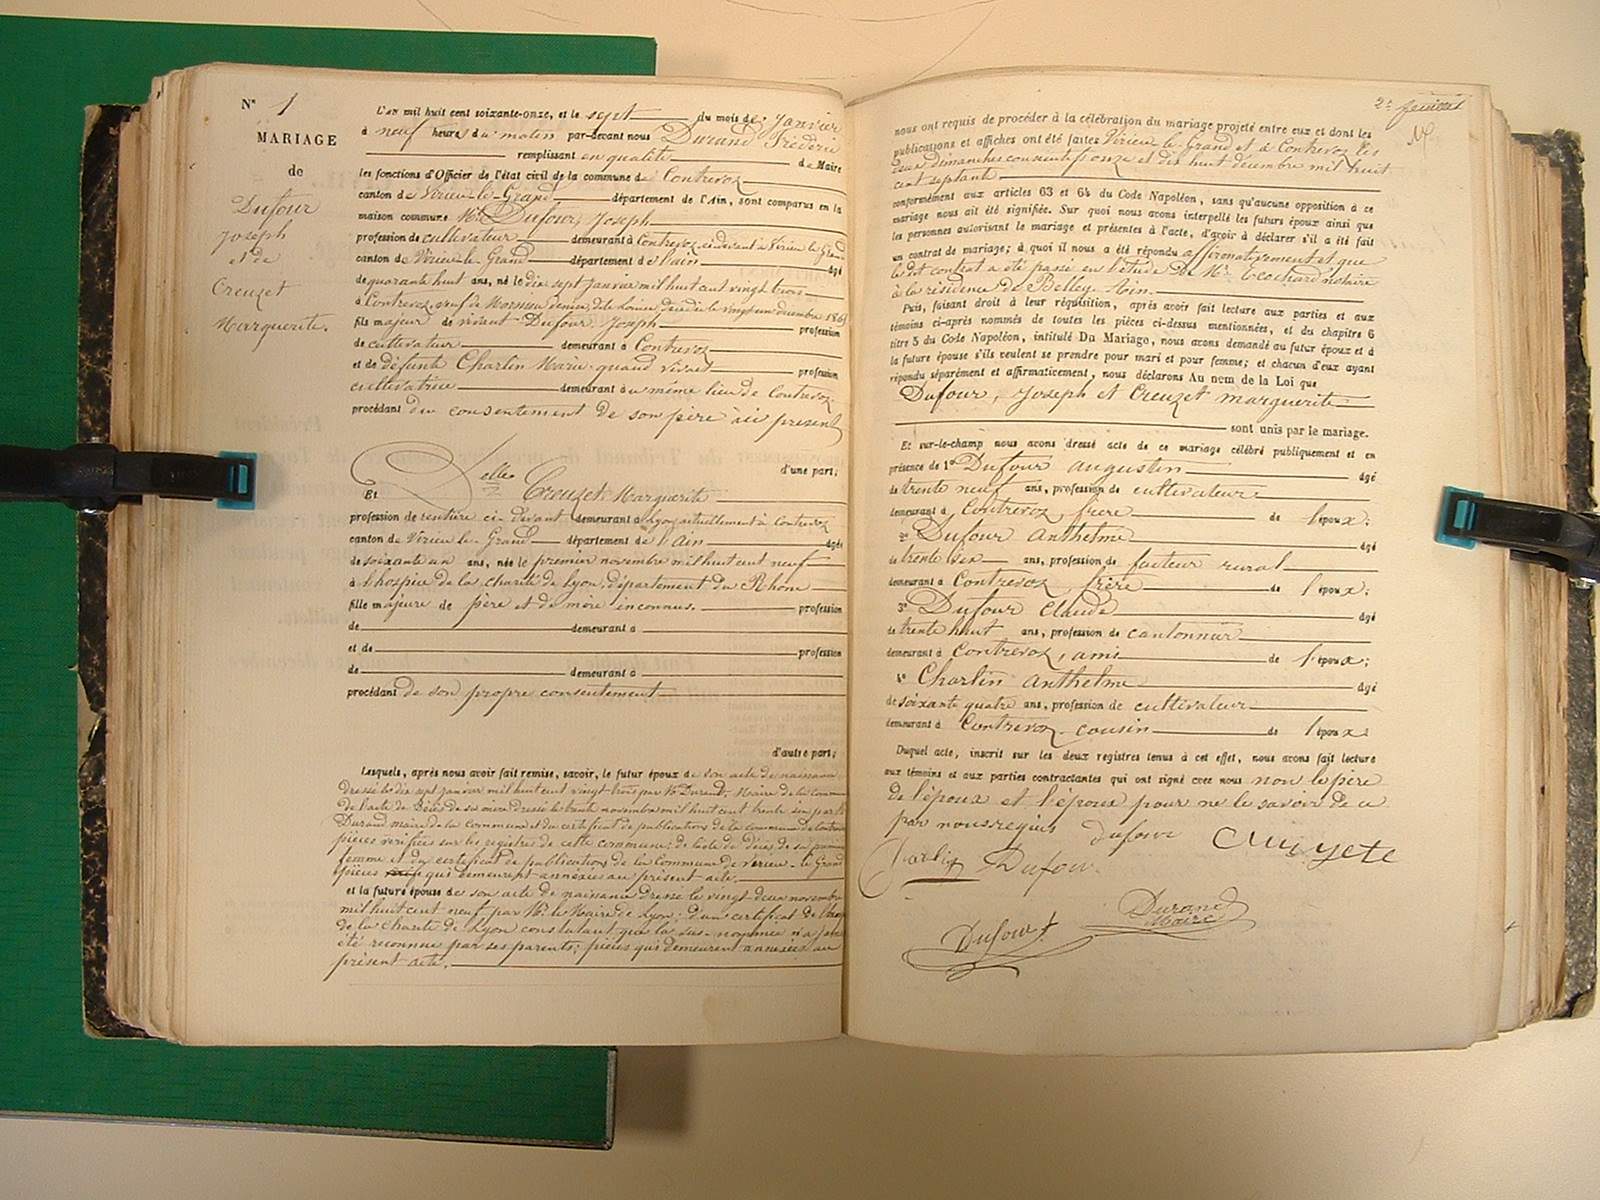 N° 1
MARIAGE
de
Dufour
Joseph
et de
Creuzet
Marguerite.
L'an mil huit cent soixante-onze, et le sept du mois de janvier
à neuf heures du matin par-devant nous Durand Fréderic
remplissant en qualité de Maire
les fonctions d'Officier de l'état civil de la commune de Contrevoz
canton de Virieu-le-Grand département de l'Ain, sont comparus en la
maison commune Mr. Dufour, Joseph
profession de cultivateur demeurant à Contrevoz, ci-devant à Virieu le Grand
canton de Virieu-le-Grand département de l'ain âgé
de quarante huit ans, né le dix sept janvier mil huit cent vingt trois
à Contrevoz, veuf de décédée le vingt un decembre
fils majeur de vivant Dufour Joseph profession
de cultivateur demeurant à Contrevoz
et de défunte Charlin Marie quand vivait profession
cultivatrice demeurant au même lieu de Contrevoz
procédant du consentement de son père ici present
d'une part;
Et Delle Creuzet Marguerite
profession de rentière ci-devant demeurant à Lyon, actuellement à Contrevoz
canton de Virieu-le-Grand département de l'Ain âgée
de soixante un ans, née le premier novembre mil huit cent neuf
à l'hospice de la charité de Lyon, département du Rhone
fille majeure de père et de mère inconnus. profession
de demeurant à
et de profession
de demeurant à
procédant de son propre consentement
d'autre part;
Lesquels, après nous avoir fait remise, savoir, le futur époux de son acte de naissance
dressé le dix sept janvier mil huit cent vingt trois par Mr. Durand, Maire de la commune
de l'acte de décès de sa mère dressé le trente novembre mil huit cent trente six par le
Durand maire de la commune et du certificat de publications de la commune de Contrevoz
pièces vérifiées sur les registres de cette commune; de l'acte de décès de sa première
femme et du certificat de publications de la Commune de Virieu-le-Grand
pièces qui demeurent annéxées au présent acte.
et la future épouse de son acte de naissance dressé le vingt-deux novembre
mil huit cent neuf par Mr. le Maire de Lyon; d'un certificat de l'hospice
de la charité de Lyon constatant que la sus-nommée n'a jamais
été reconnue par ses parents; pièces qui demeurent annexées au
présent acte.
2e feuillet
nous ont requis de procéder à la célébration du mariage projeté entre eux et dont les
publications et affiches ont été faites Virieu-le-Grand et à Contrevoz les
deux dimanches consécutifs onze et dix huit décembre mil huit
cent septante
conformément aux articles 63 et 64 du Code Napoléon, sans qu'aucune opposition à ce
mariage nous ait été signifiée. Sur quoi nous avons interpellé les futurs époux ainsi que
les personnes autorisant le mariage et présentes à l'acte, d'avoir à déclarer s'il a été fait
un contrat de mariage; à quoi il nous a été répondu affirmativement et que
le dit contrat a été passé en l'étude de Mr. Trochard notaire
à la résidence de Belley. Ain.
Puis, faisant droit à leur réquisition, après avoir fait lecture aux parties et aux
témoins ci-après nommés de toutes les pièces ci-dessus mentionnées, et du chapitre 6
titre 5 du Code Napoléon, intitulé Du Mariage, nous avons demandé au futur époux et à
la future épouse s'ils veulent se prendre pour mari et pour femme; et chacun d'eux ayant
répondu séparément et affirmativement, nous déclarons Au nom de la Loi que
Dufour, Joseph et Creuzet marguerite
sont unis par le mariage.
Et sur-le-champ nous avons dressé acte de ce mariage célébré publiquement et en
présence de 1° Dufour augustin âgé
de trente neuf ans, profession de cultivateur
demeurant à Contrevoz, frère de l'époux;
2° Dufour anthelme âgé
de trente six ans, profession de facteur rural
demeurant à Contrevoz, frère de l'époux;
3° Dufour claude âgé
de trente huit ans, profession de cantonnier
demeurant à Contrevoz, ami de l'époux;
4° Charlin anthelme âgé
de soixante quatre ans, profession de cultivateur
demeurant à Contrevoz. cousin de l'époux.
Duquel acte, inscrit sur les deux registres tenus à cet effet, nous avons fait lecture
aux témoins et aux parties contractantes qui ont signé avec nous non le père
de l'époux et l'époux pour ne le savoir de ce
par nous requis Dufour Cruzete
Charlin Dufour
Durand
Maire
Dufour